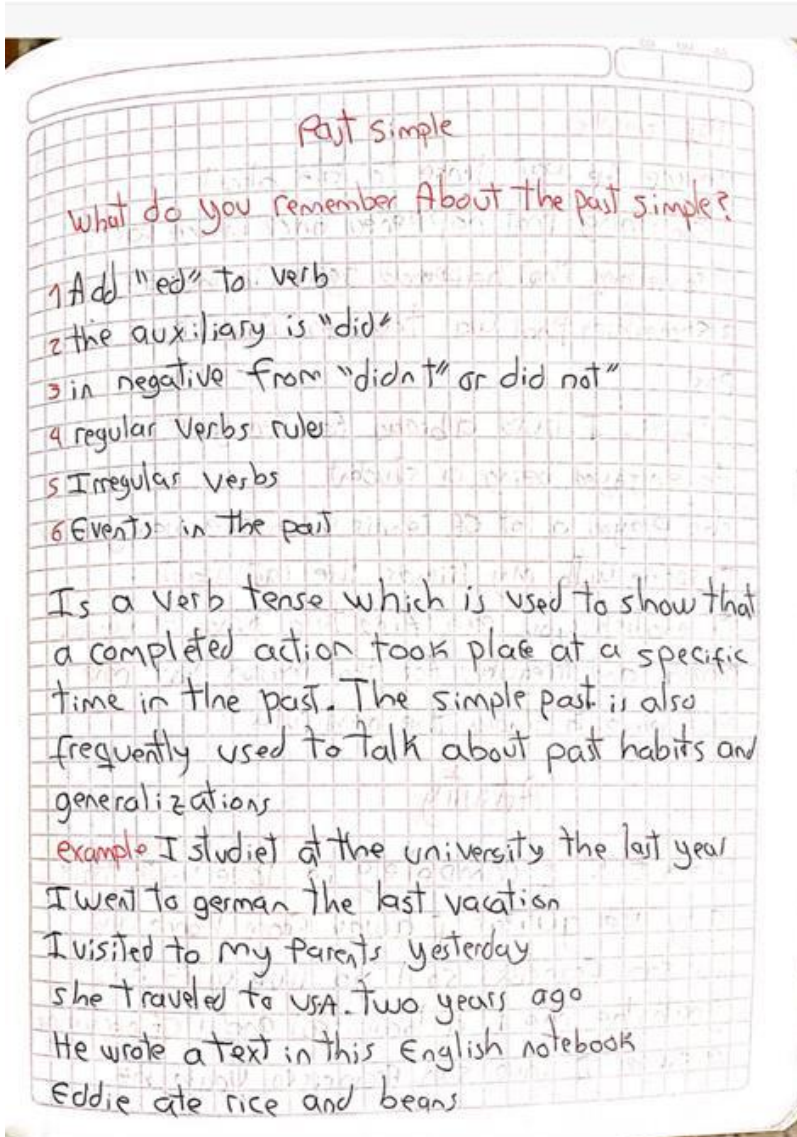 Past simple
What do you remember About the past simple?
1 Add "ed" to verb
2 the auxiliary is "did"
3 in negative from "didn t" or did not"
4 regular Verbs rules
5 Irregular verbs
6 Events in the past
Is a verb tense which is used to show that
a completed action took place at a specific
time in the past. The simple past is also
frequently used to talk about past habits and
generalizations
example I studiet at the university the last year
I went to german the last vacation
I visited to my parents yesterday
she traveled to USA. Two years ago
He wrote a text in this English notebook
Eddie ate rice and beans